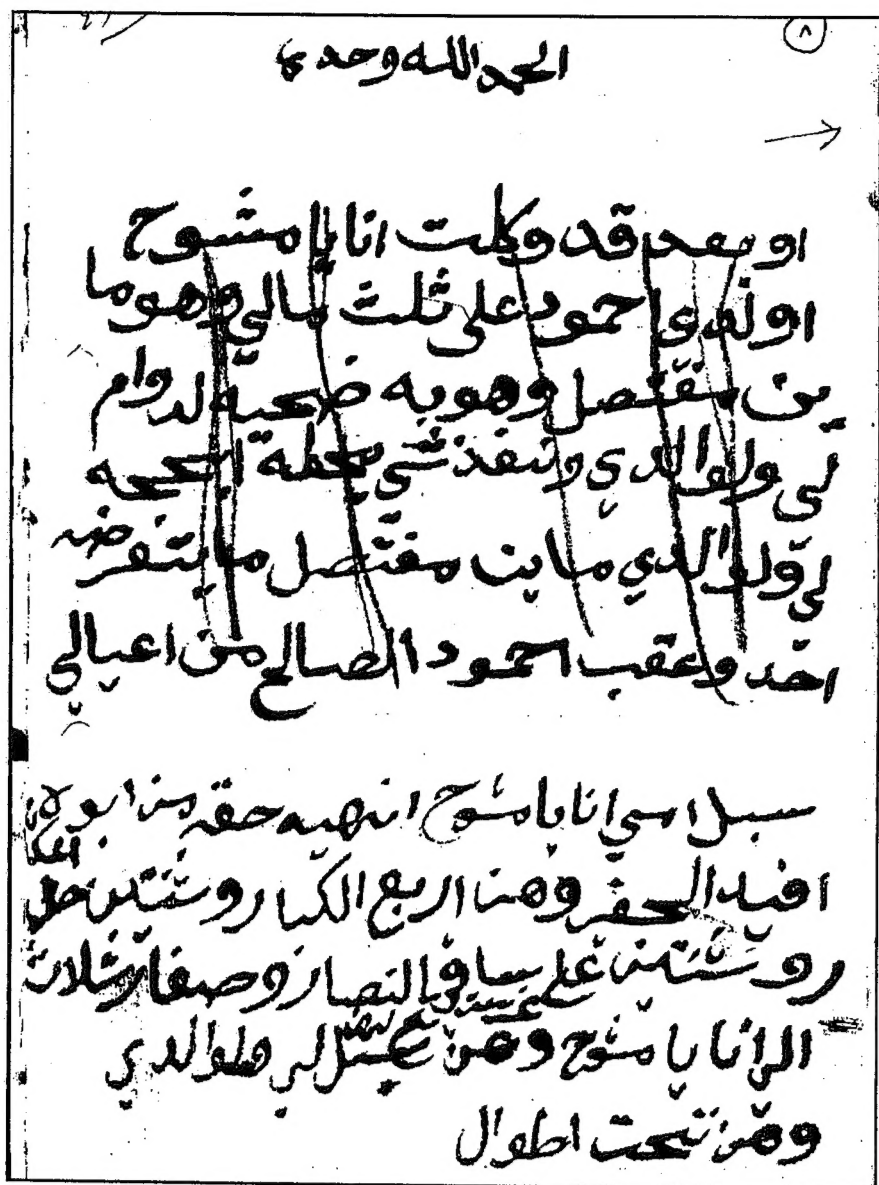 ٨
الحمد الله وحده
او بعد قد وكلت انا يا مشوح
اولدي احمود على ثلث مالي وهو ما
ين مقتصل وهو به ضحيه لدوام
لي ولوالدي وتنفذ شي يحطه ابحجه
لي ولوالدي ماين مقتصل ما يتفرضه
احد وعقب احمود الصالح من اعيالي
سبل اسي انا يا مشوح انهيه حقه من ابو
افيد الحفر وهن اربع الكبار وثنتين
روثنتين على ساق النصار وصغار ثلاث
الي انا يا مشوح وهن لي هلوالدي
وهن تحت اطوال